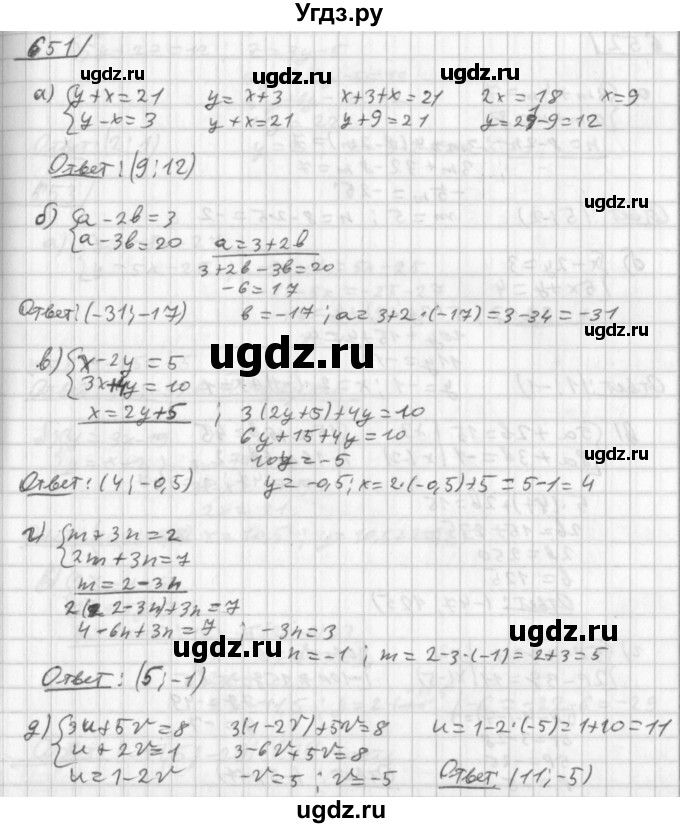 Угдз.ру
651/
а) { y + x = 21    y = x + 3    x + 3 + x = 21    2x = 18    x = 9
{ y - x = 3    y + x = 21    y + 9 = 21    y = 21 - 9 = 12
Ответ: (9; 12)
б) { a - 2b = 3
{ a - 3b = 20    a = 3 + 2b
3 + 2b - 3b = 20
-b = 17
Ответ: (-31; -17)    b = -17; a = 3 + 2·(-17) = 3 - 34 = -31
в) { x - 2y = 5
{ 3x + 4y = 10
x = 2y + 5 ; 3(2y + 5) + 4y = 10
6y + 15 + 4y = 10
10y = -5
Ответ: (4; -0,5)    y = -0,5; x = 2·(-0,5) + 5 = 5 - 1 = 4
г) { m + 3n = 2
{ 2m + 3n = 7
m = 2 - 3n
2(2 - 3n) + 3n = 7
4 - 6n + 3n = 7 ; -3n = 3
n = -1 ; m = 2 - 3·(-1) = 2 + 3 = 5
Ответ: (5; -1)
д) { 3u + 5v = 8    3(1 - 2v) + 5v = 8    u = 1 - 2·(-5) = 1 + 10 = 11
{ u + 2v = 1    3 - 6v + 5v = 8
u = 1 - 2v    -v = 5 ; v = -5    Ответ: (11; -5)
ugdz.ru
ugdz.ru
ugdz.ru
ugdz.ru
ugdz.ru
ugdz.ru
ugdz.ru
ugdz.ru
ugdz.ru
ugdz.ru
ugdz.ru
ugdz.ru
ugdz.ru
ugdz.ru